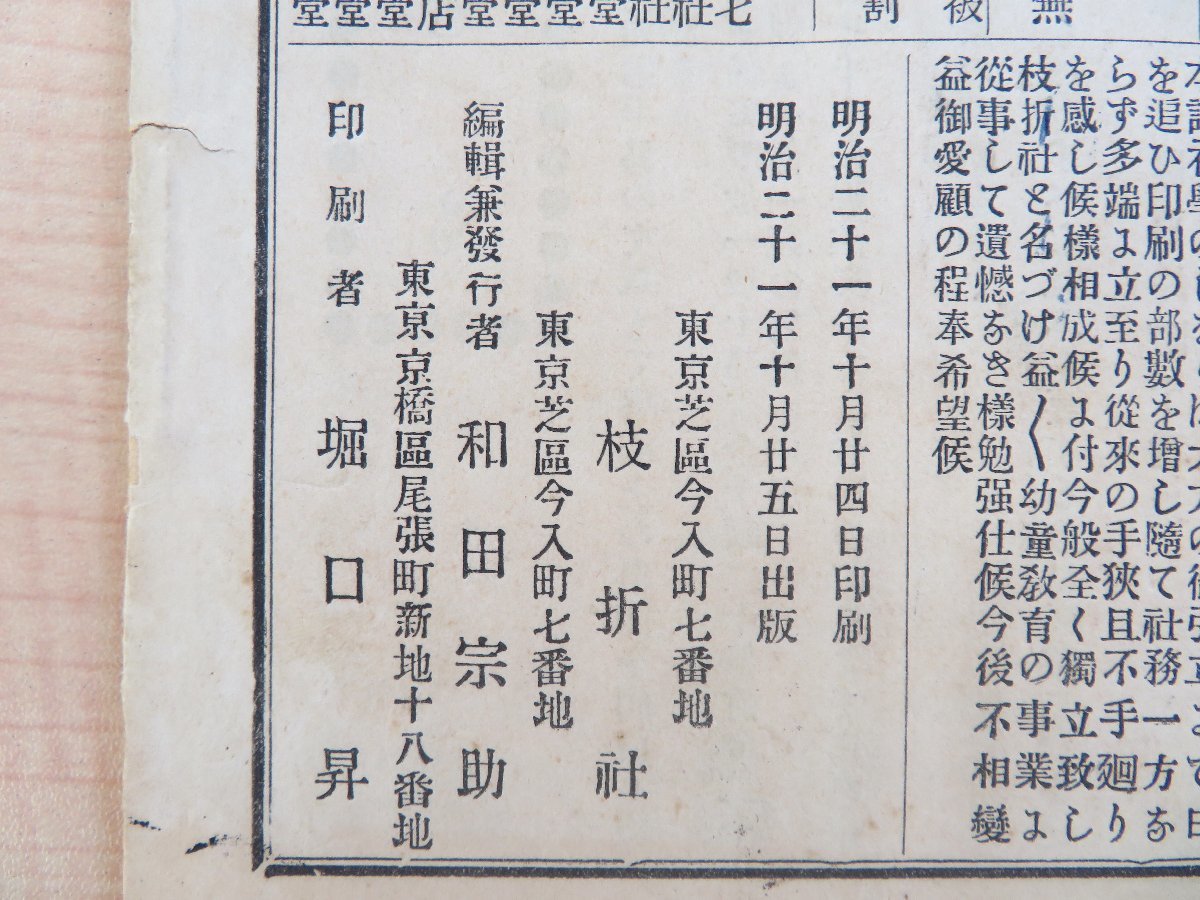 無
被
割
七社社堂堂堂堂店堂堂堂
を追ひ印刷の部數を增し隨て社務一方な
らず多端に立至り從來の手狹且不手廻り
を感し候樣相成候に付今般全く獨立致し
枝折社と名づけ益〱幼童敎育の事業に
從事して遺憾なき樣勉强仕候今後不相變
益御愛顧の程奉希望候
明治二十一年十月廿四日印刷
明治二十一年十月廿五日出版
東京芝區今入町七番地
枝折社
東京芝區今入町七番地
編輯兼發行者 和田宗助
東京京橋區尾張町新地十八番地
印刷者 堀口昇